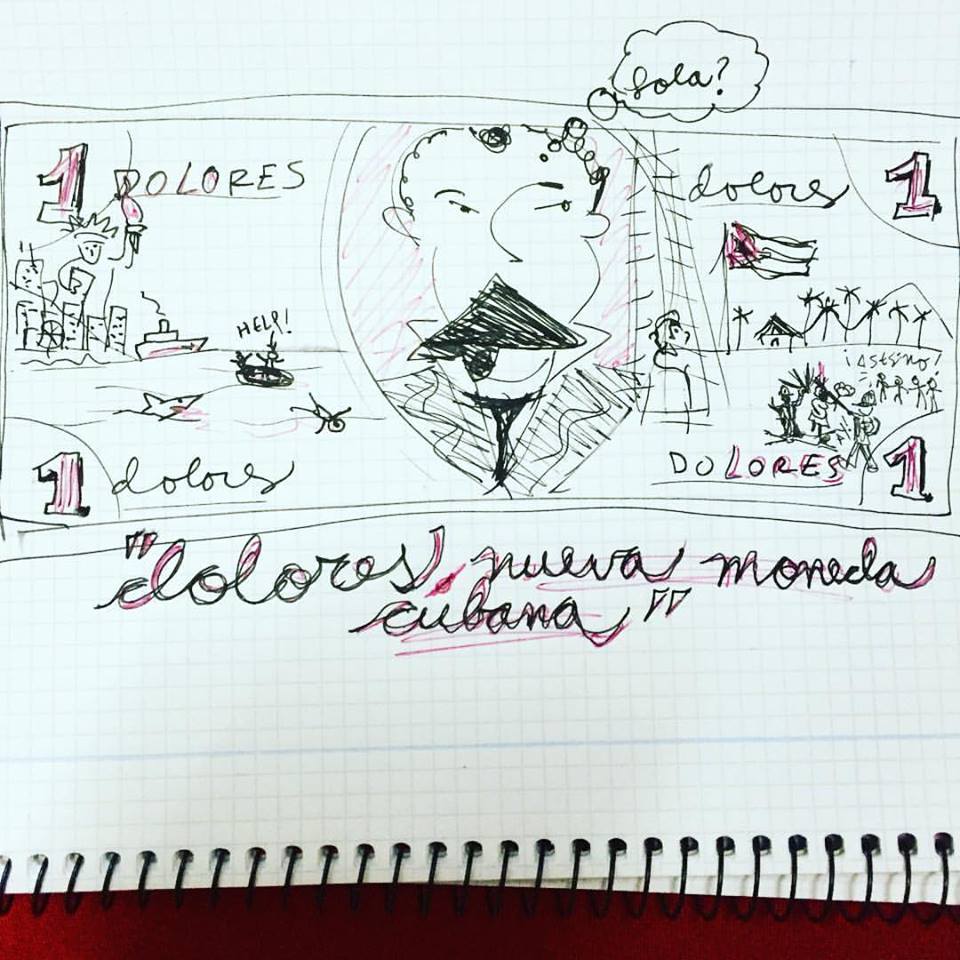 Sola?
1 DOLORES
dolores 1
HELP!
¡Asesino!
1 dolores
DOLORES 1
"dolores, nueva moneda
cubana"